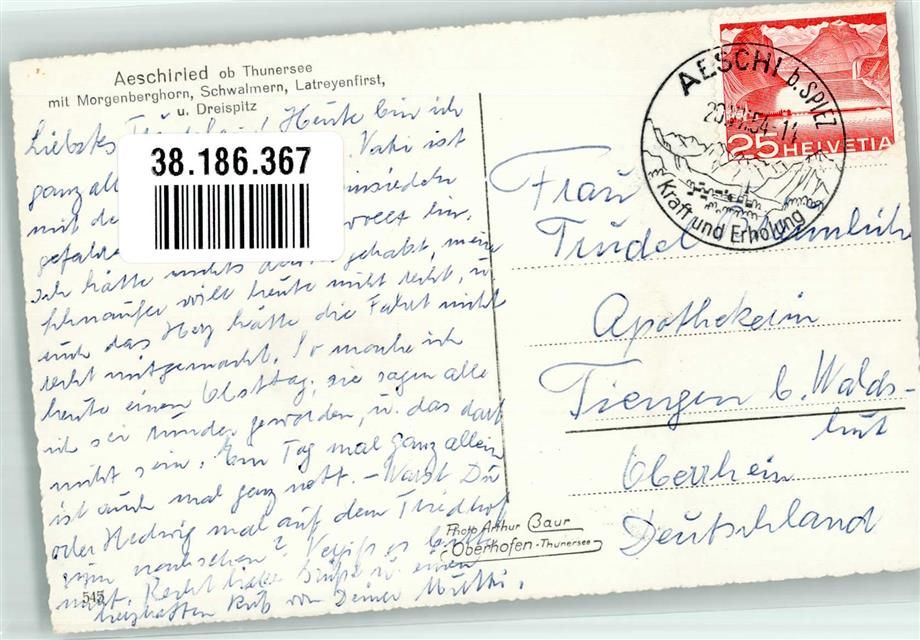 Aeschiried ob Thunersee
mit Morgenberghorn, Schwalmern, Latreyenfirst,
u. Dreispitz
Liebstes Heute bin ich
ganz all Vaki ist
mit de insiedeln
gefahre wollt bin.
Ich hätte nichts gehabt, mein
Schnaufer will heute nicht recht, u.
auch das Herz hätte die Fahrt nicht
recht mitgemacht. So mache ich
heute einen Obsttag, sie sagen alle
ich sei runder geworden, u. das darf
nicht sein. Ein Tag mal ganz allein
ist auch mal ganz nett. – Warst Du
oder Hedwig mal auf dem Friedhof
zum nachsehen? Vergiss es bitte
nicht. Recht liebe Grüße u. einen
herzhaften Kuß von Deiner Mutti.
545
38.186.367
Photo Arthur Baur
Oberhofen-Thunersee
AESCHI b. SPIEZ
54-14
Kraft und Erholung
25 HELVETIA
Frau
Trudel
Apothekerin
Tiengen b. Walds-
hut
Oberrhein
Deutschland